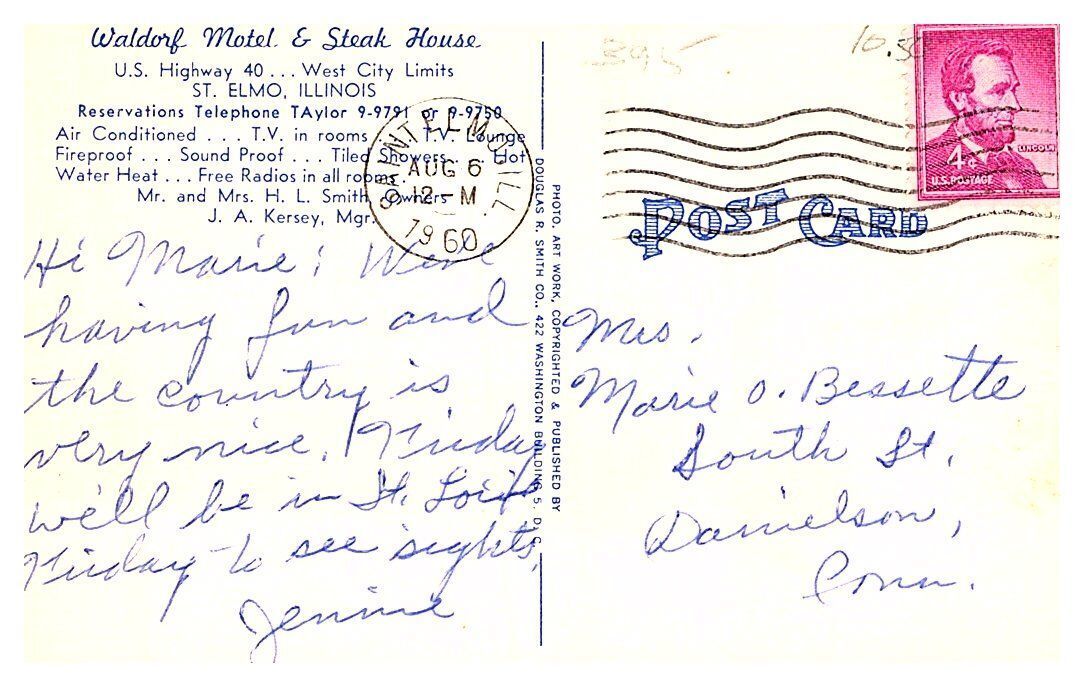 Waldorf Motel & Steak House
U.S. Highway 40 . . . West City Limits
ST. ELMO, ILLINOIS
Reservations Telephone TAylor 9-9791 or 9-9750
Air Conditioned . . . T.V. in rooms . . . T.V. Lounge
Fireproof . . . Sound Proof . . . Tiled Showers . . . Hot
Water Heat . . . Free Radios in all rooms
Mr. and Mrs. H. L. Smith, Owners
J. A. Kersey, Mgr.
SAINT ELMO, ILL.
AUG 6
12-M
1960
Hi Marie; Were
having fun and
the country is
very nice. Friday
we'll be in St. Louis
Friday to see sights,
Jennie
PHOTO, ART WORK, COPYRIGHTED & PUBLISHED BY
DOUGLAS R. SMITH CO., 422 WASHINGTON BUILDING 5, D.C.
395
10.50
4¢
LINCOLN
U.S. POSTAGE
POST CARD
Mrs.
Marie O. Bessette
South St.
Danielson,
Conn.